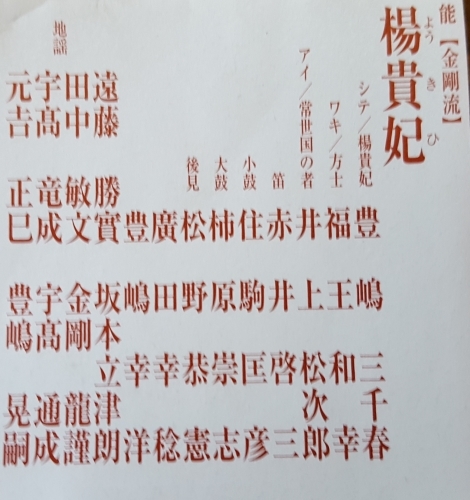 能【金剛流】
楊貴妃
ようきひ
シテ/楊貴妃 豊嶋三千春
ワキ/方士 福王和幸
アイ/常世国の者 井上松次郎
笛 赤井啓三
小鼓 住駒匡彦
大鼓 柿原崇志
後見 松野恭憲
廣田幸稔
豊嶋幸洋
地謡 遠藤勝實 坂本立津朗
田中敏文 金剛龍謹
宇髙竜成 宇髙通成
元𠮷正巳 豊嶋晃嗣